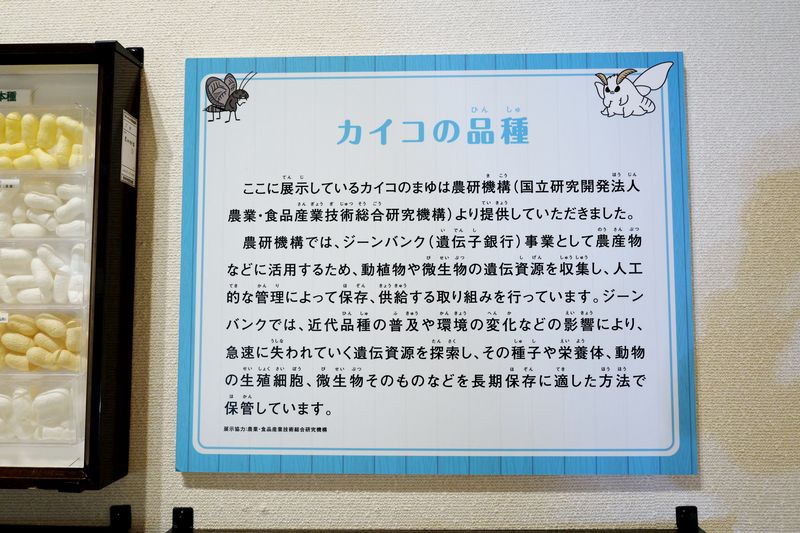 本種
カイコの品種
ひん しゅ
ここに展示しているカイコのまゆは農研機構（国立研究開発法人
農業・食品産業技術総合研究機構）より提供していただきました。
農研機構では、ジーンバンク（遺伝子銀行）事業として農産物
などに活用するため、動植物や微生物の遺伝資源を収集し、人工
的な管理によって保存、供給する取り組みを行っています。ジーン
バンクでは、近代品種の普及や環境の変化などの影響により、
急速に失われていく遺伝資源を探索し、その種子や栄養体、動物
の生殖細胞、微生物そのものなどを長期保存に適した方法で
保管しています。
展示協力：農業・食品産業技術総合研究機構